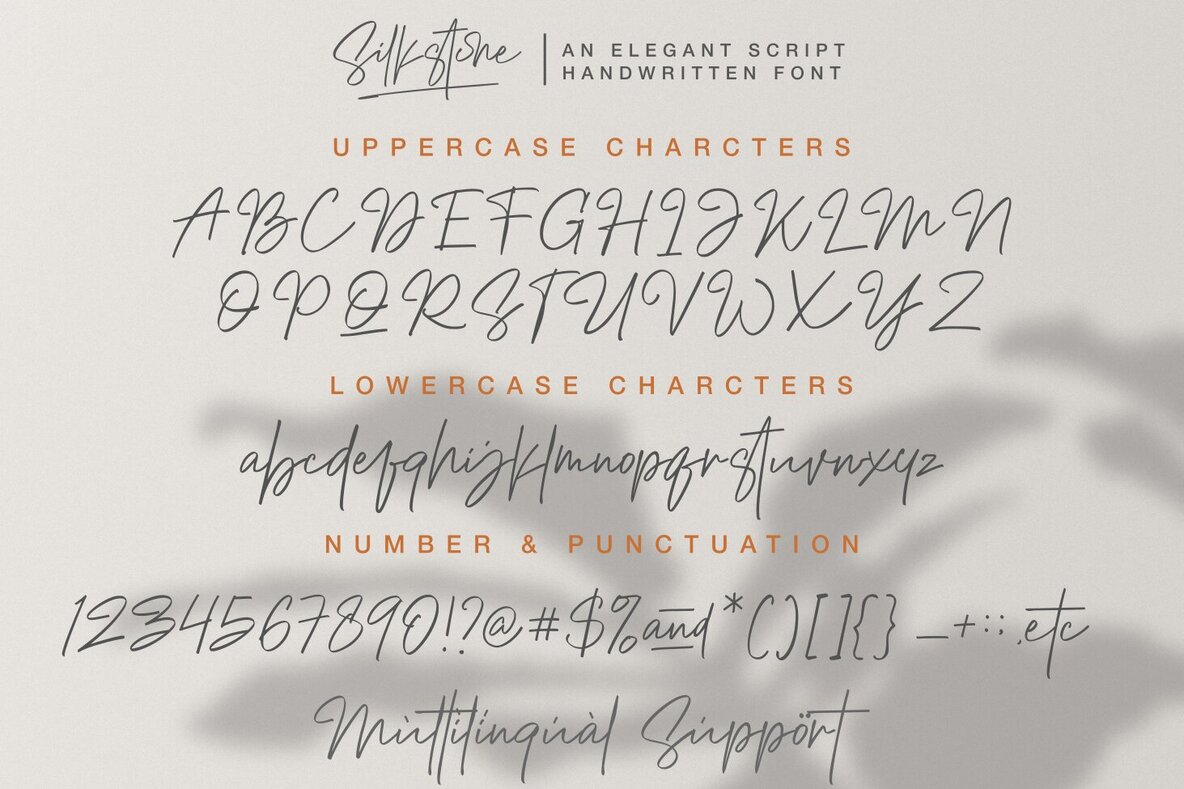 Silkstone | AN ELEGANT SCRIPT
HANDWRITTEN FONT
UPPERCASE CHARCTERS
ABCDEFGHIJKLMN
OPQRSTUVWXYZ
LOWERCASE CHARCTERS
abcdefghijklmnopqrstuvwxyz
NUMBER & PUNCTUATION
1234567890!?@#$%and*()[]{}_+:;,etc
Mùltilíngúàl Súppört